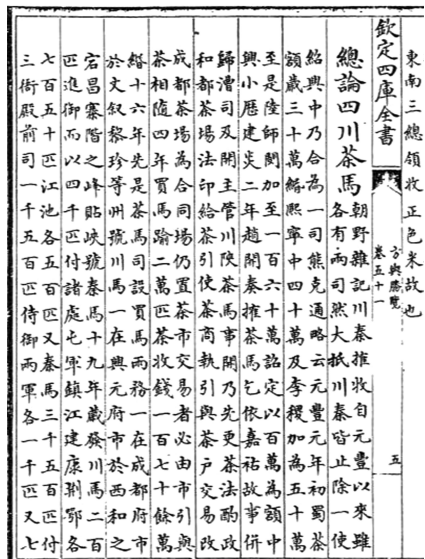 東南三總領收正色米故也
欽定四庫全書
方輿勝覽
卷五十一
五
總論四川茶馬
朝野雜記川秦搉收自元豐以來雖
各有兩司然大抵川秦皆止除一使
紹興中乃合為一司熊克通略云元豐元年初蜀茶
額歲三十萬緡熙寧中四十萬及李稷加為五十萬
至是陸師閔加至一百六十萬詔定以百萬為額中
興小歷建炎二年趙開奏搉茶馬乞依嘉祐故事併
歸漕司及開主管川陜茶馬事開乃先更茶法酌政
和都茶場法印給茶引使茶商執引與茶戶交易改
成都茶場為合同場仍置茶市交易者必由市引與
茶相隨四年買馬踰二萬匹茶收錢一百七十餘萬
緡十六年先是茶馬司設買馬兩務一在成都府市
於文叙黎珍等州號川馬一在興元府市於西和之
宕昌寨階之峰貼峽號秦馬十九年歲發川馬二百
匹進御而以四千匹付諸處屯軍鎮江建康荆鄂各
七百五十匹江池各五百匹又秦馬三千五百匹付
三衙殿前司一千五百匹侍御兩軍各一千匹又七